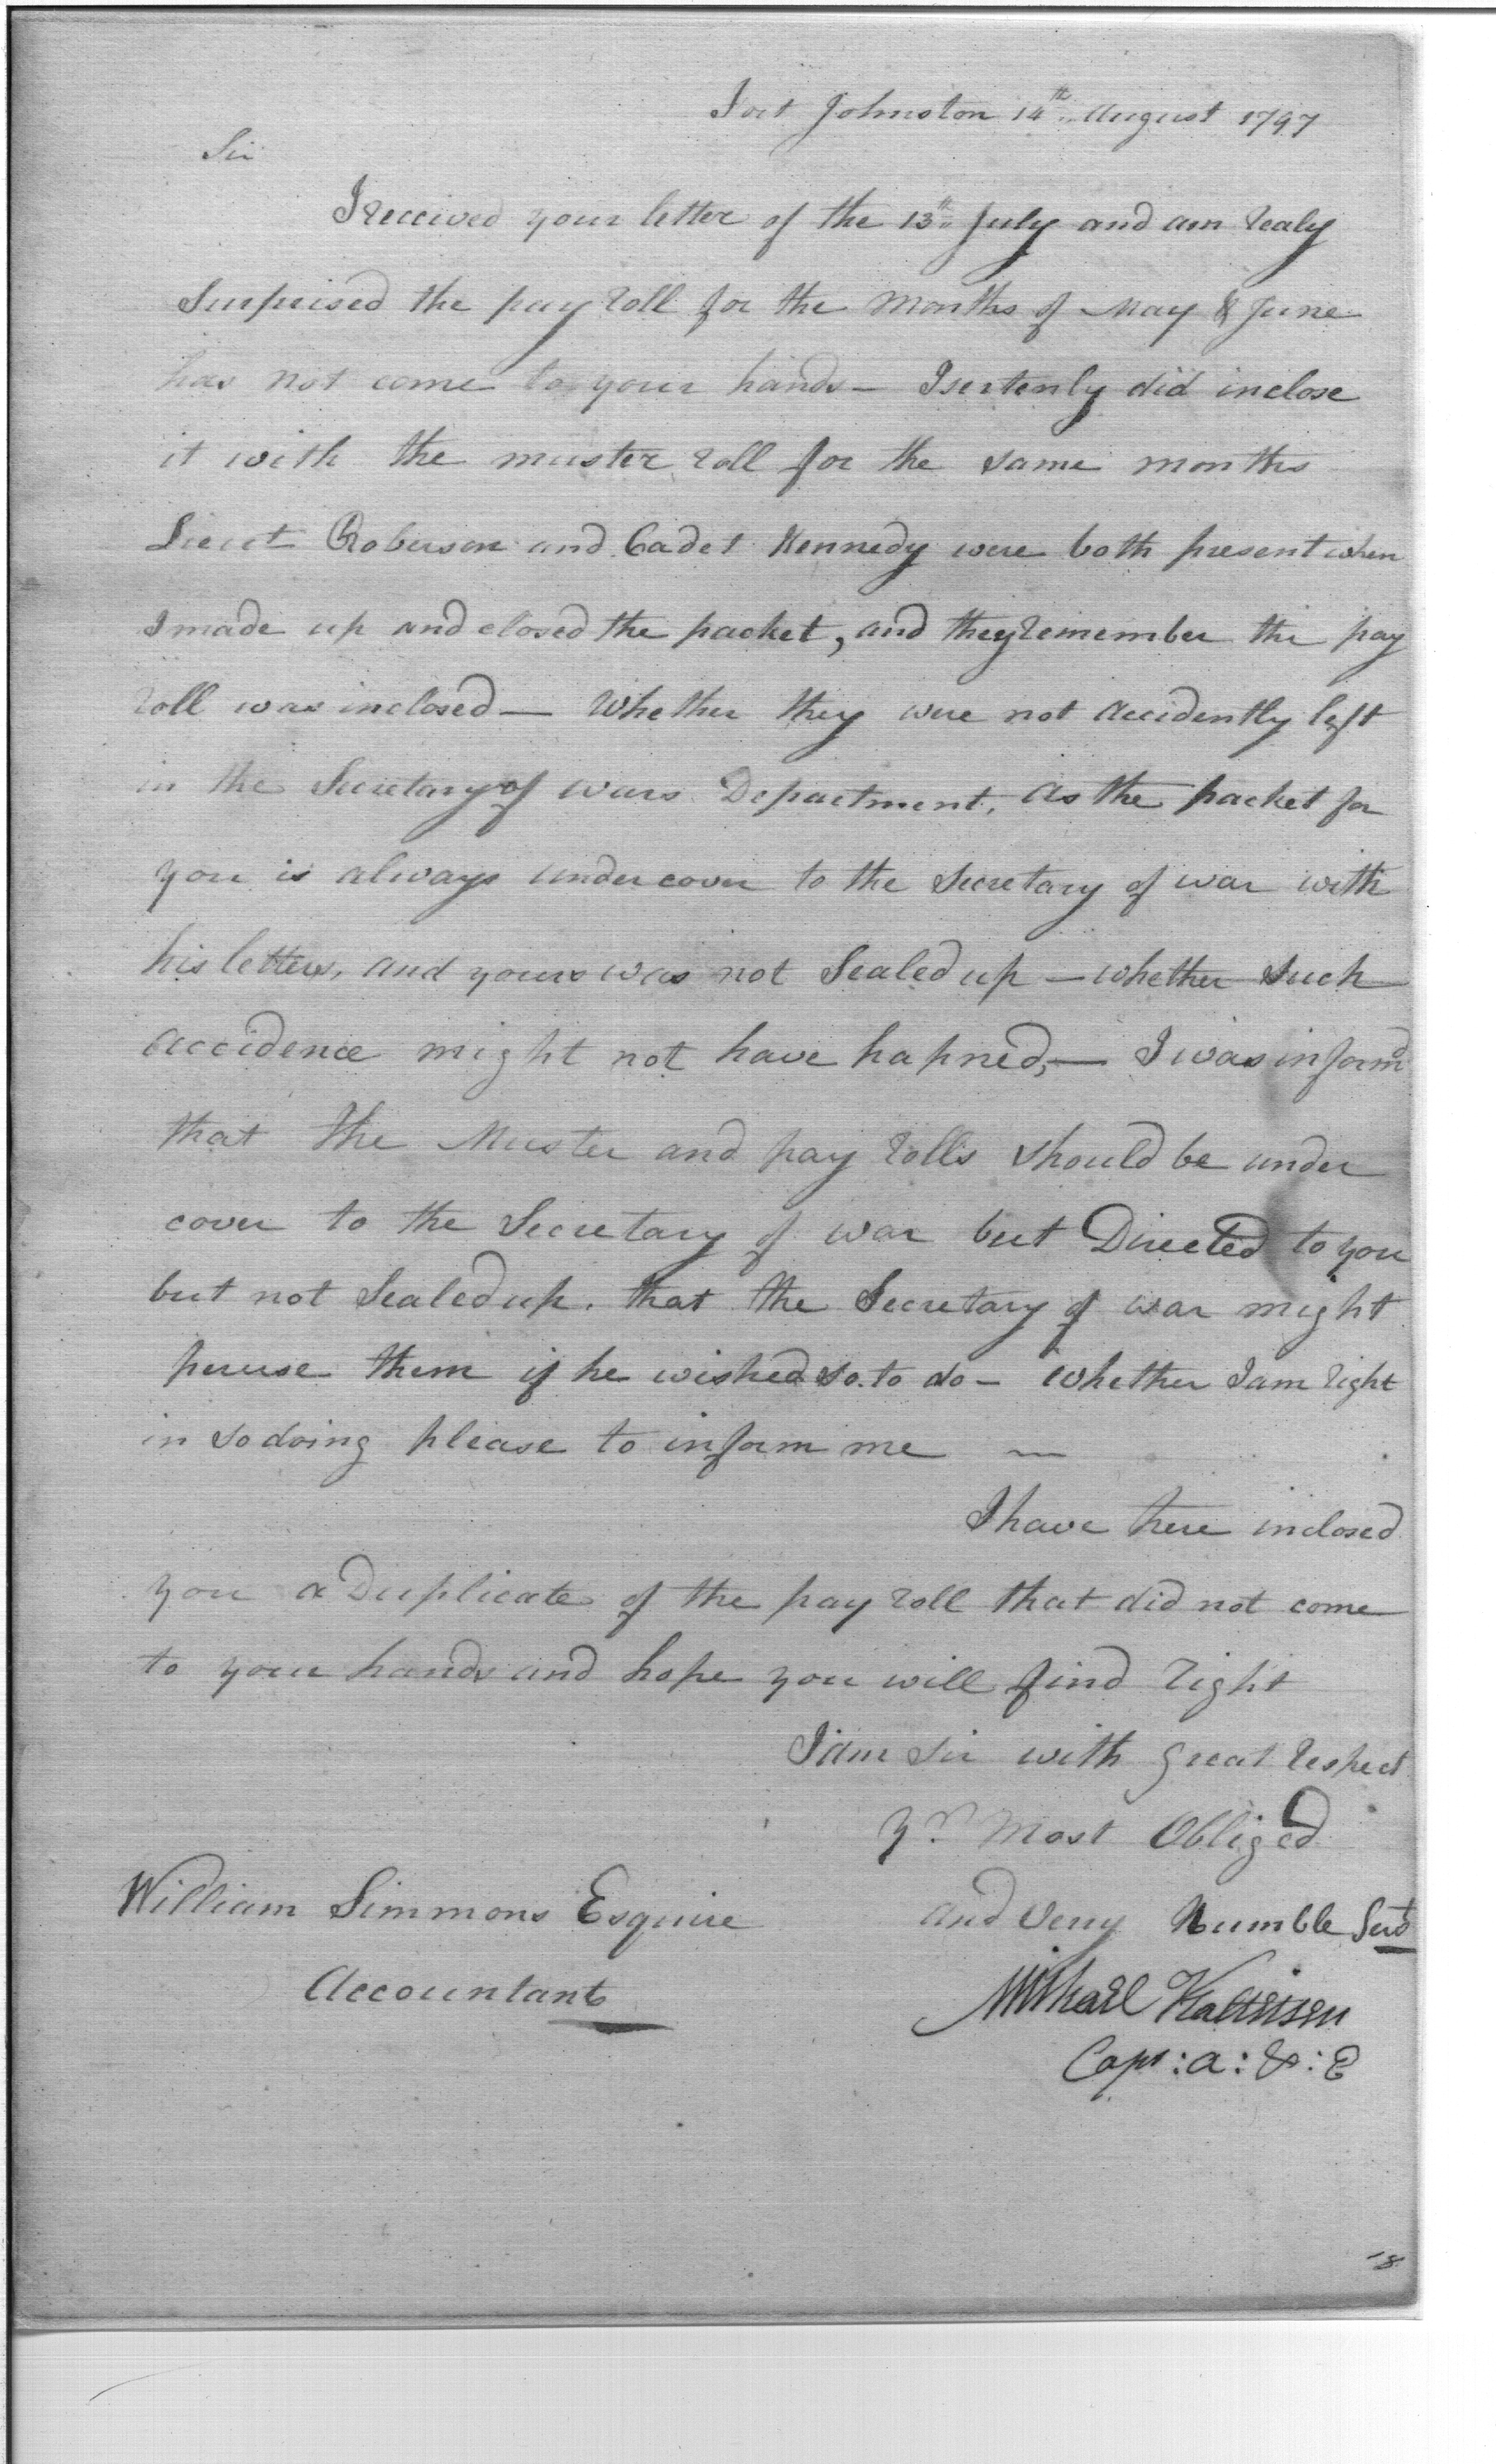 Fort Johnston 14th August 1797
Sir
I received your letter of the 13th July and am realy
Surprised the pay roll for the Months of May & June
has not come to your hands – I sertenly did inclose
it with the muster roll for the same months
Lieut Roberson and Cadet Kennedy were both present when
I made up and closed the packet, and they remember the pay
roll was inclosed – Whether they were not accidently left
in the Secretary of wars Department, as the packet for
you is always under cover to the Secretary of war with
his letters, and yours was not Sealed up – whether Such
accidence might not have hapned, – I was informd
that the Muster and pay rolls should be under
cover to the Secretary of war but Directed to you
but not Sealed up. that the Secretary of war might
peruse them if he wished so to do – whether I am right
in so doing please to inform me –
I have here inclosed
you a Duplicate of the pay roll that did not come
to your hands and hope you will find right
I am Sir with great respect
Yr Most Obliged
and very Humble Servt
William Simmons Esquire
Accountant
Michael Kalteisen
Capt: a: &: E
18